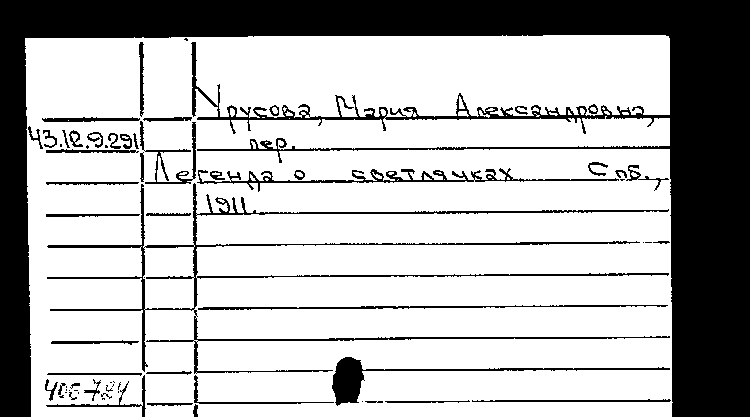 Урусова, Мария Александровна,
43.12.9.291 пер.
Легенда о светлячках Спб.,
1911.
406-724